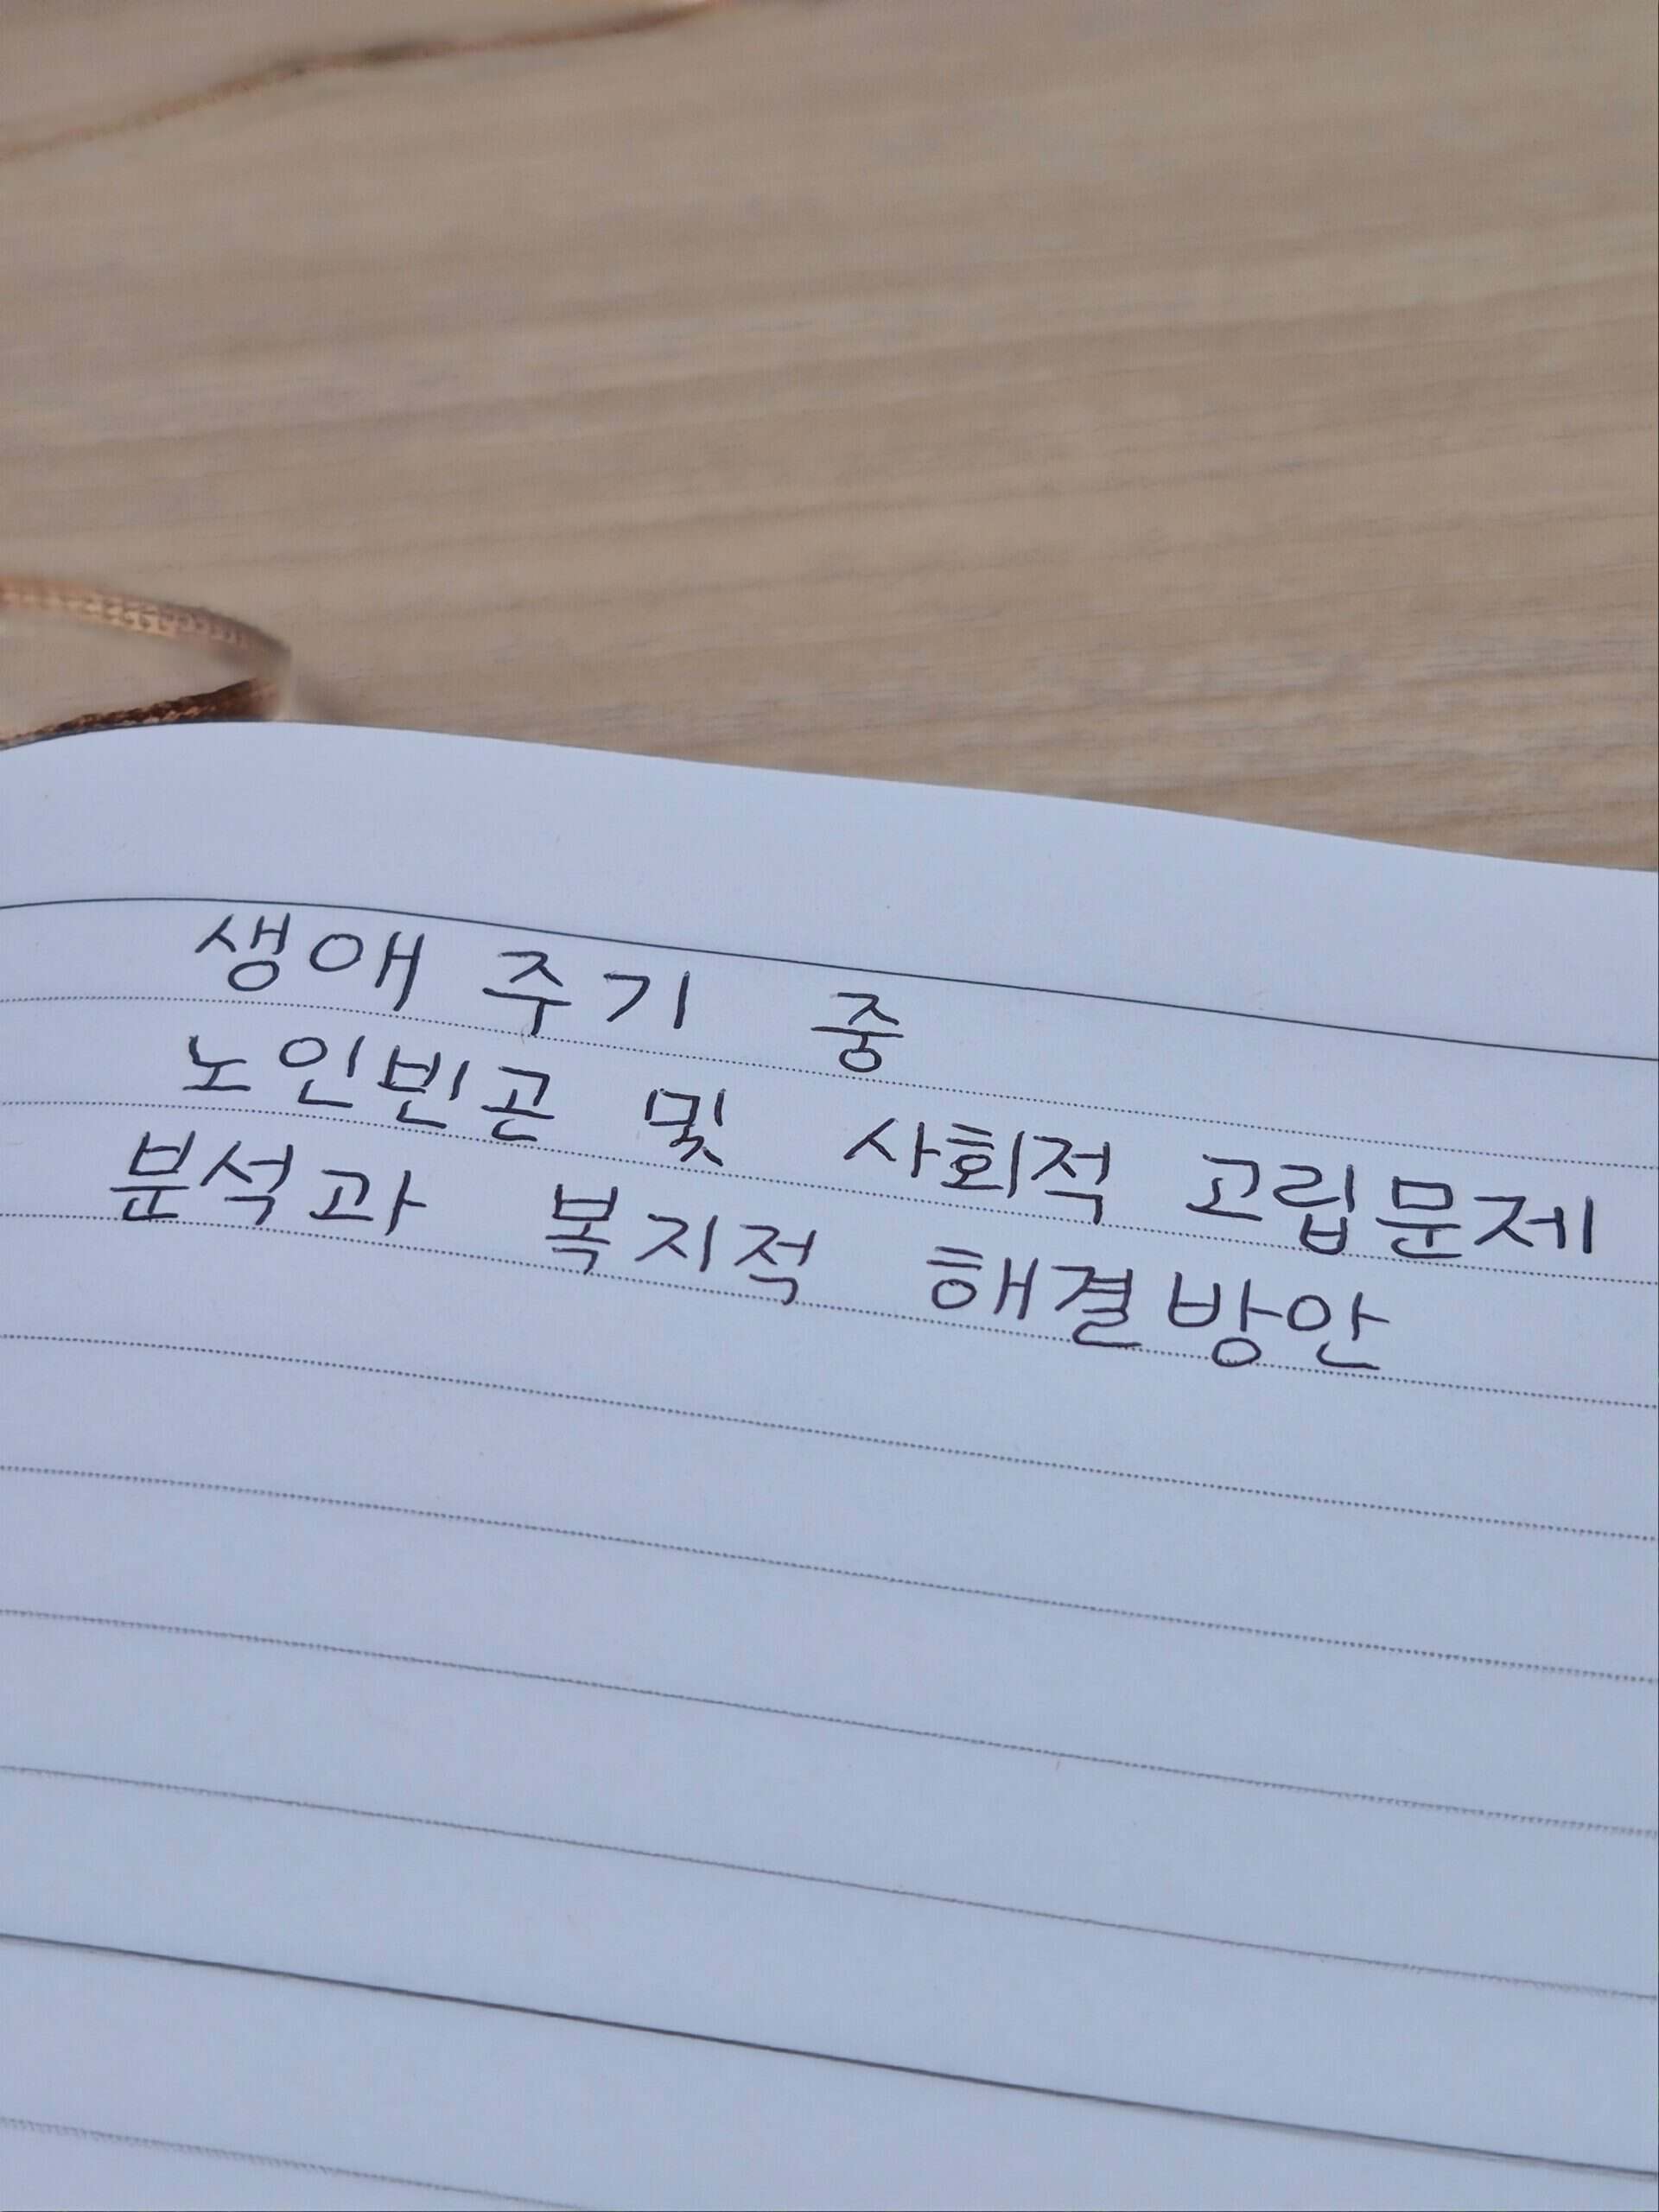 생애 주기 중
노인빈곤 및 사회적 고립문제
분석과 복지적 해결방안